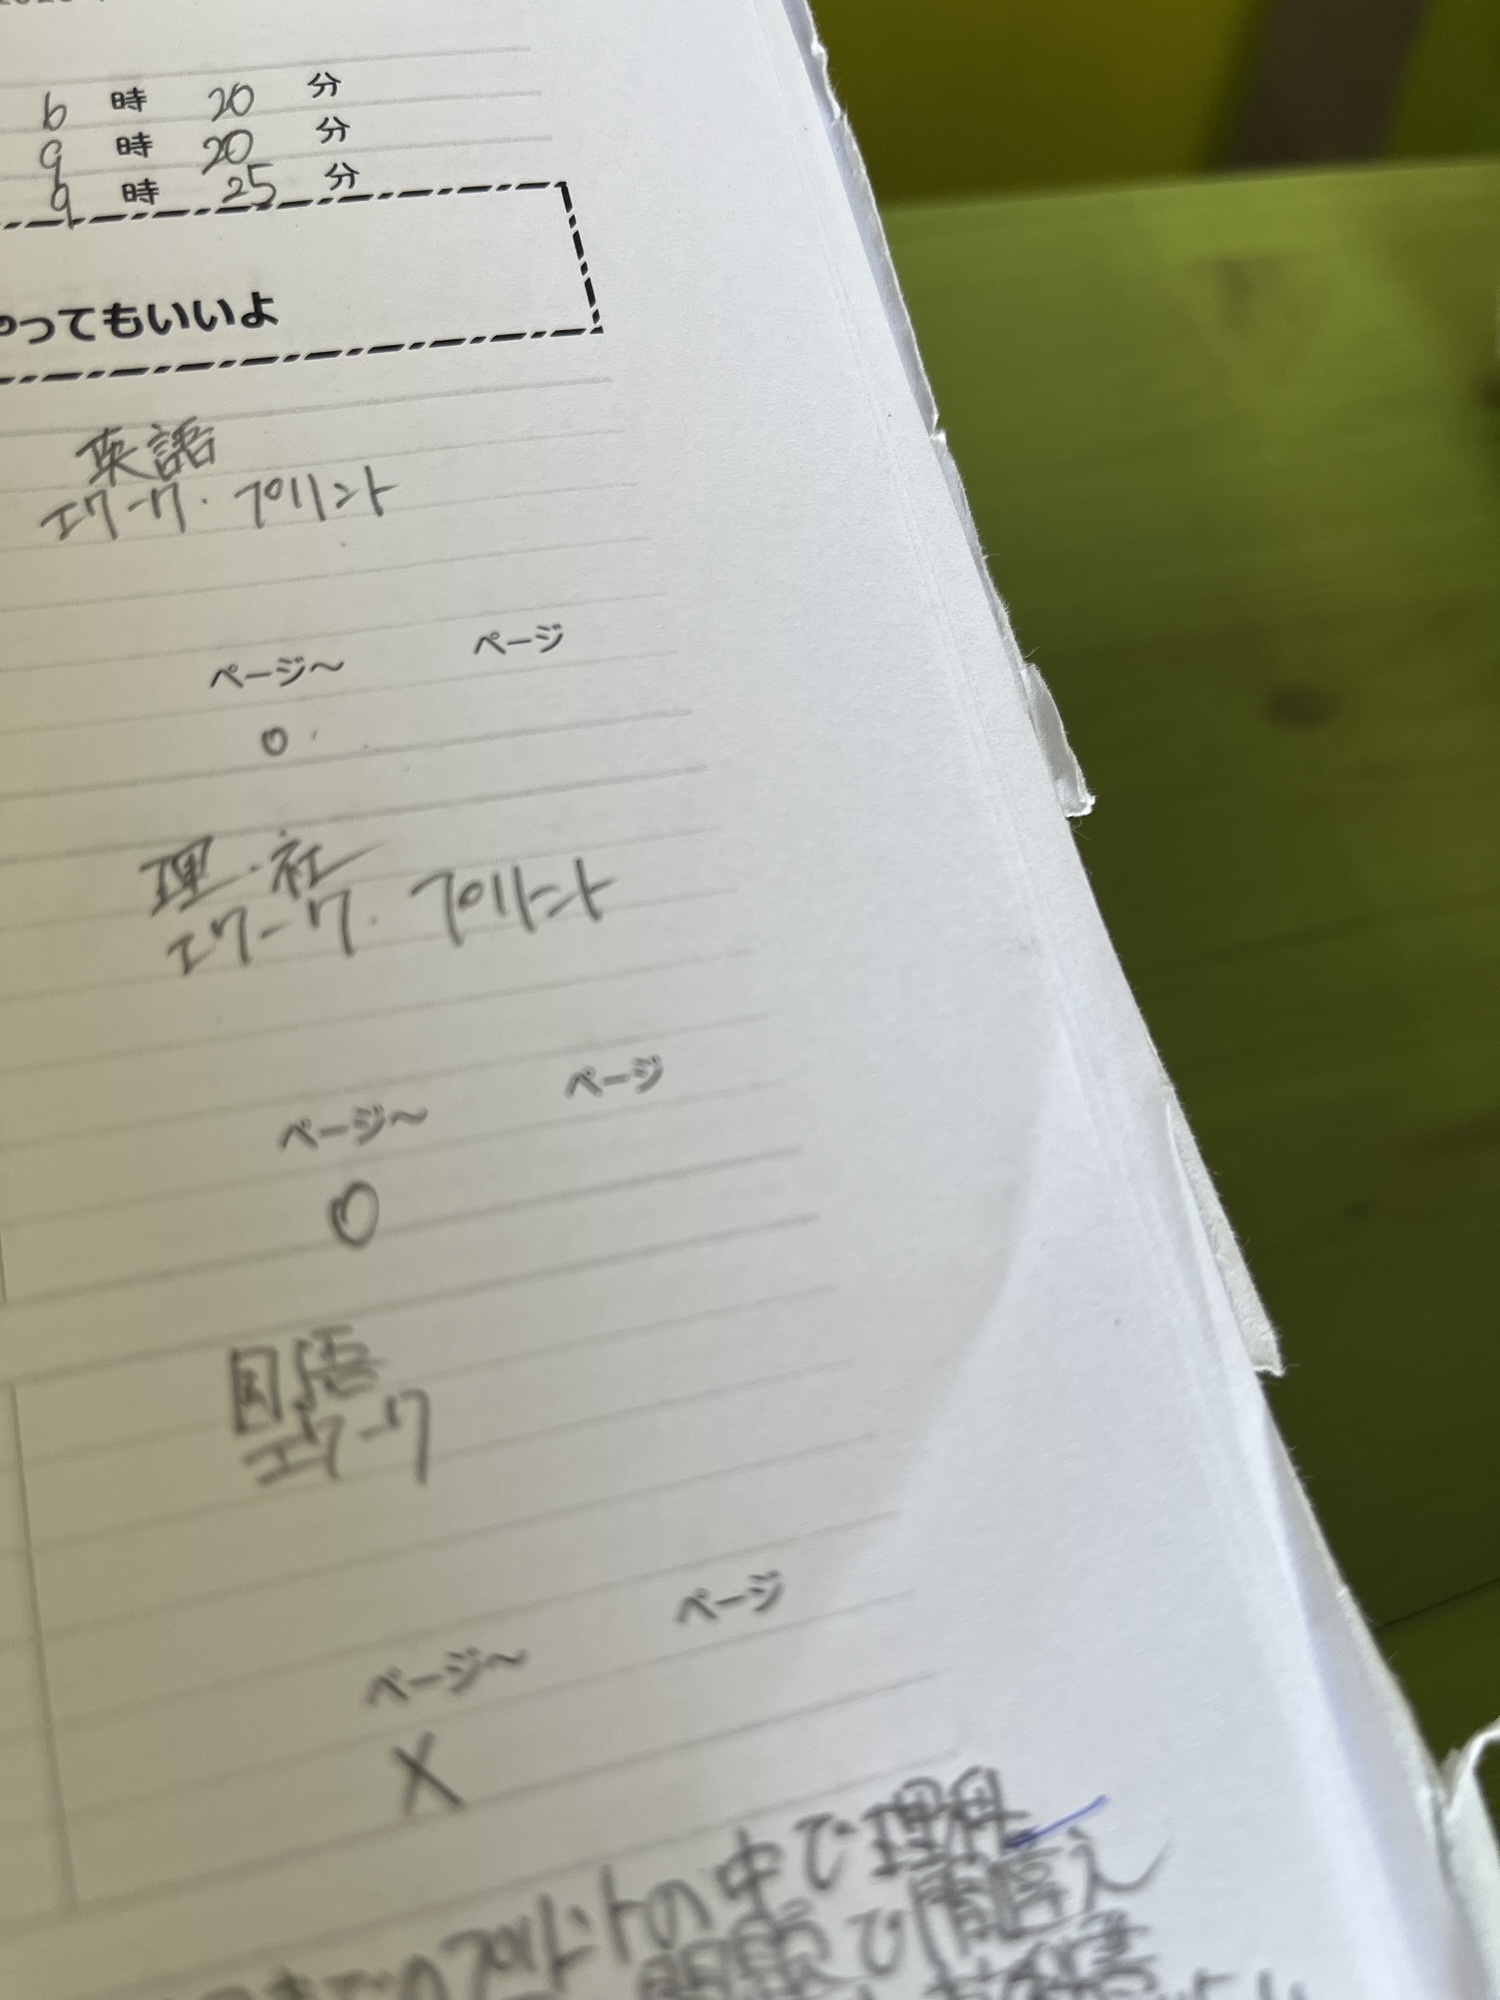 6 時 20 分
9 時 20 分
9 時 25 分
ってもいいよ
英語
エワーク・プリント
ページ〜 ページ
○
理・社
エワーク・プリント
ページ〜 ページ
○
国語
エワーク
ページ〜 ページ
×
プリントの中で理科
問題で間違え